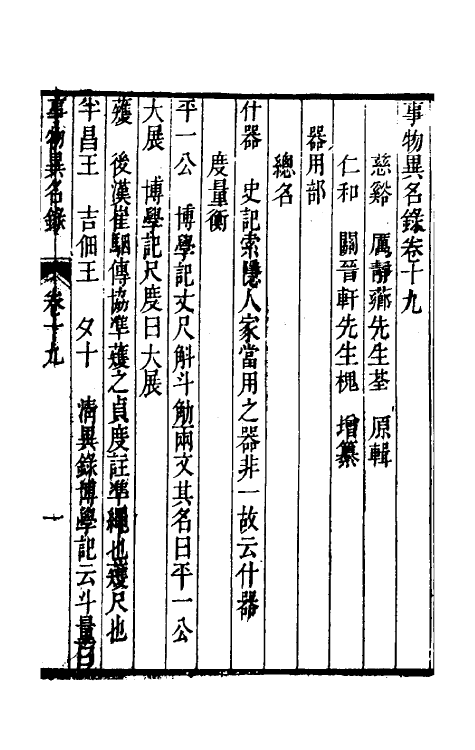 事物異名錄卷十九
慈谿　厲靜薌先生荃　原輯
仁和　關晉軒先生槐　增纂
器用部
總名
什器　史記索隱人家當用之器非一故云什器
度量衡
平一公　博學記丈尺斛斗觔兩文其名曰平一公
大展　博學記尺度曰大展
蒦　後漢崔駰傳協準蒦之貞度註準繩也蒦尺也
半昌王　吉佃王　夕十　清異錄博學記云斗量曰
事物異名錄　卷十九　一